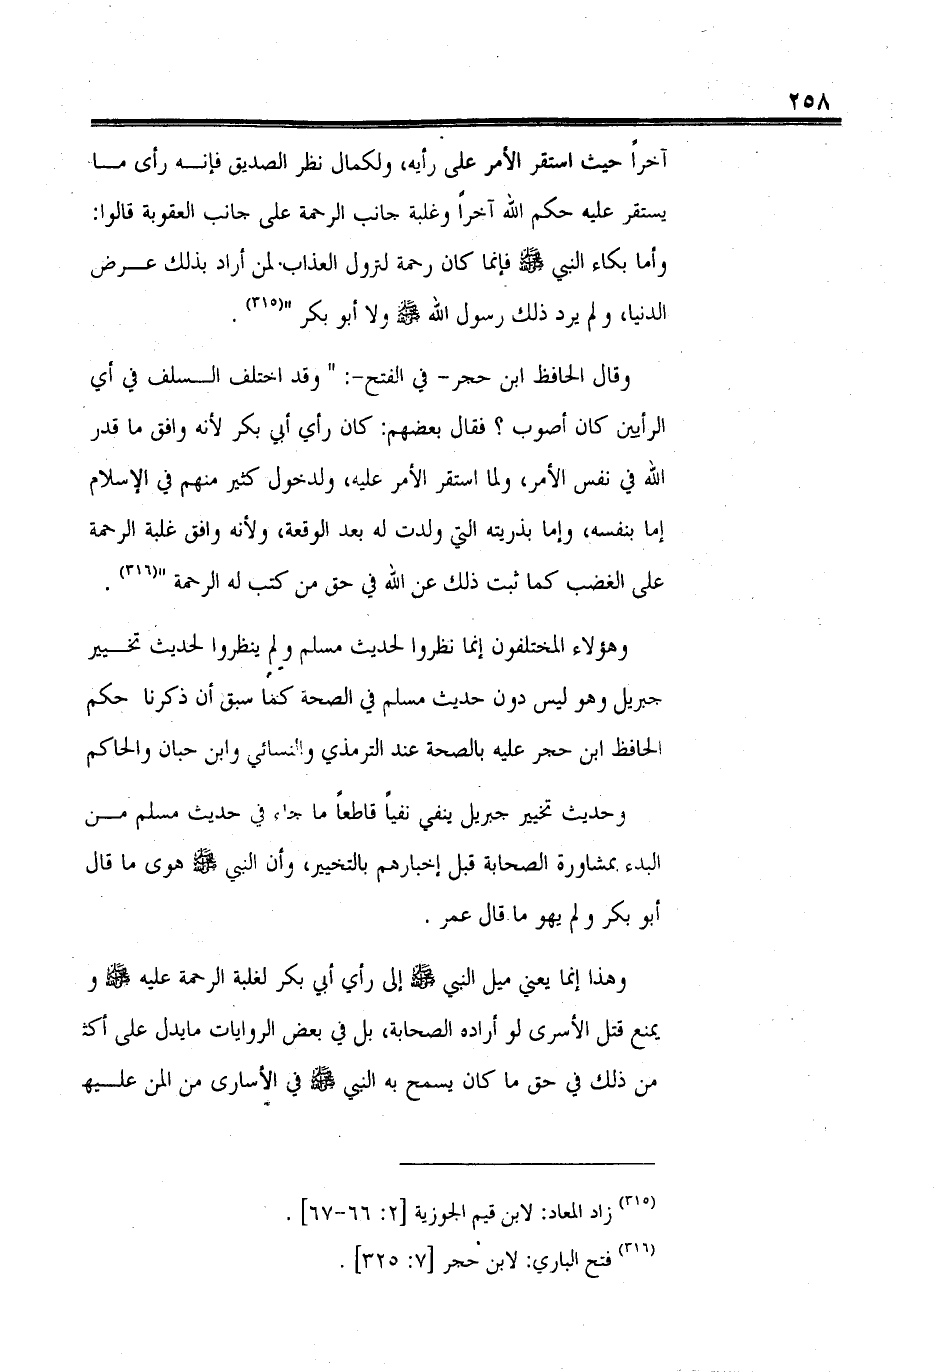 ٢٥٨
آخراً حيث استقر الأمر على رأيه، ولكمال نظر الصديق فإنه رأى ما
يستقر عليه حكم الله آخراً وغلبة جانب الرحمة على جانب العقوبة قالوا:
وأما بكاء النبي ﷺ فإنما كان رحمة لنزول العذاب لمن أراد بذلك عرض
الدنيا، ولم يرد ذلك رسول الله ﷺ ولا أبو بكر "(٣١٥) .
وقال الحافظ ابن حجر- في الفتح-: " وقد اختلف السلف في أي
الرأيين كان أصوب ؟ فقال بعضهم: كان رأي أبي بكر لأنه وافق ما قدر
الله في نفس الأمر، ولما استقر الأمر عليه، ولدخول كثير منهم في الإسلام
إما بنفسه، وإما بذريته التي ولدت له بعد الوقعة، ولأنه وافق غلبة الرحمة
على الغضب كما ثبت ذلك عن الله في حق من كتب له الرحمة "(٣١٦) .
وهؤلاء المختلفون إنما نظروا لحديث مسلم ولم ينظروا لحديث تخيير
جبريل وهو ليس دون حديث مسلم في الصحة كما سبق أن ذكرنا حكم
الحافظ ابن حجر عليه بالصحة عند الترمذي والنسائي وابن حبان والحاكم
وحديث تخيير جبريل ينفي نفياً قاطعاً ما جاء في حديث مسلم من
البدء بمشاورة الصحابة قبل إخبارهم بالتخيير، وأن النبي ﷺ هوى ما قال
أبو بكر ولم يهو ما قال عمر .
وهذا إنما يعني ميل النبي ﷺ إلى رأي أبي بكر لغلبة الرحمة عليه ﷺ و
يمنع قتل الأسرى لو أراده الصحابة، بل في بعض الروايات مايدل على أكث
من ذلك في حق ما كان يسمح به النبي ﷺ في الأسارى من المن عليه
(٣١٥) زاد المعاد: لابن قيم الجوزية [٢: ٦٦-٦٧] .
(٣١٦) فتح الباري: لابن حجر [٧: ٣٢٥] .